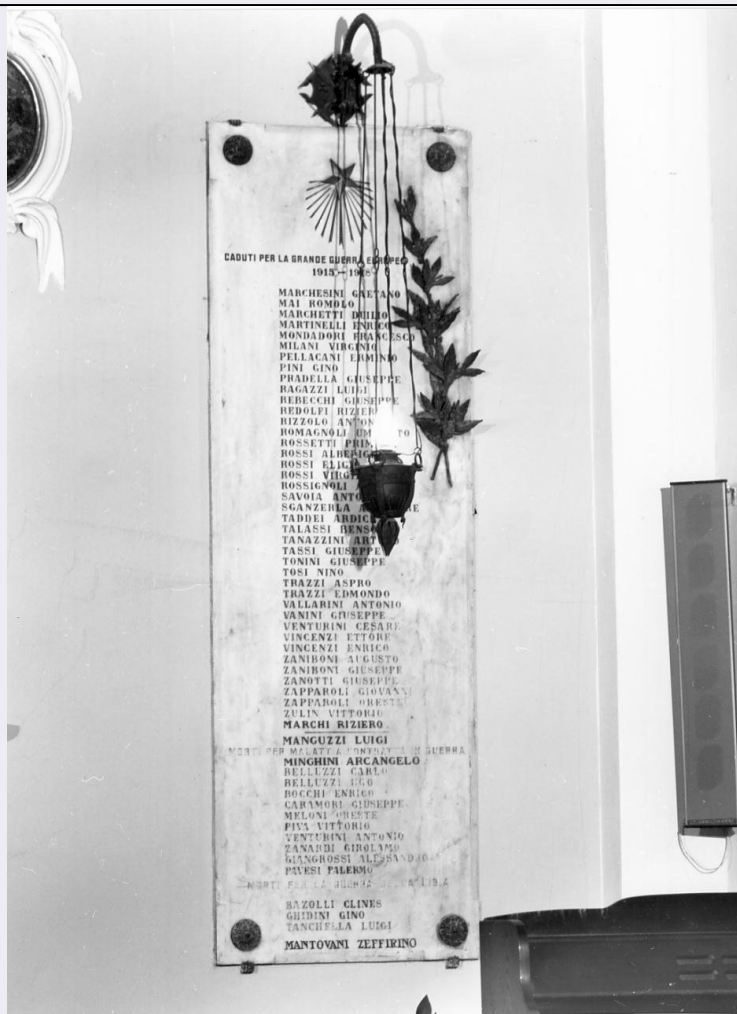 CADUTI PER LA GRANDE GUERRA EUROPEA
1915-1918
MARCHESINI GAETANO
MAI ROMOLO
MARCHETTI DUILIO
MARTINELLI ENRICO
MONDADORI FRANCESCO
MILANI VIRGINIO
PELLACANI ERMINIO
PINI GINO
PRADELLA GIUSEPPE
RAGAZZI LUIGI
REBECCHI GIUSEPPE
REDOLFI RIZIER
RIZZOLO ANTON
ROMAGNOLI UM TO
ROSSETTI PRIM
ROSSI ALBERIG
ROSSI ELIG
ROSSI VIRGI
ROSSIGNOLI
SAVOIA ANTO
SGANZERLA
TADDEI ARDIC
TALASSI BENSO
TANAZZINI ARTU
TASSI GIUSEPPE
TONINI GIUSEPPE
TOSI NINO
TRAZZI ASPRO
TRAZZI EDMONDO
VALLARINI ANTONIO
VANINI GIUSEPPE
VENTURINI CESARE
VINCENZI ETTORE
VINCENZI ENRICO
ZANIBONI AUGUSTO
ZANIBONI GIUSEPPE
ZANOTTI GIUSEPPE
ZAPPAROLI GIOVANNI
ZAPPAROLI ORESTE
ZULIN VITTORIO
MARCHI RIZIERO
MANGUZZI LUIGI
MORTI PER MALATTIA CONTRATTA IN GUERRA
MINGHINI ARCANGELO
BELLUZZI CARLO
BELLUZZI UGO
BOCCHI ENRICO
CARAMORI GIUSEPPE
MELONI ORESTE
PIVA VITTORIO
VENTURINI ANTONIO
ZANARDI GIROLAMO
GIANGROSSI ALESSANDRO
PAVESI PALERMO
MORTI PER LA GUERRA DELLA LIBIA
BAZOLLI CLINES
GHIDINI GINO
TANCHELLA LUIGI
MANTOVANI ZEFFIRINO